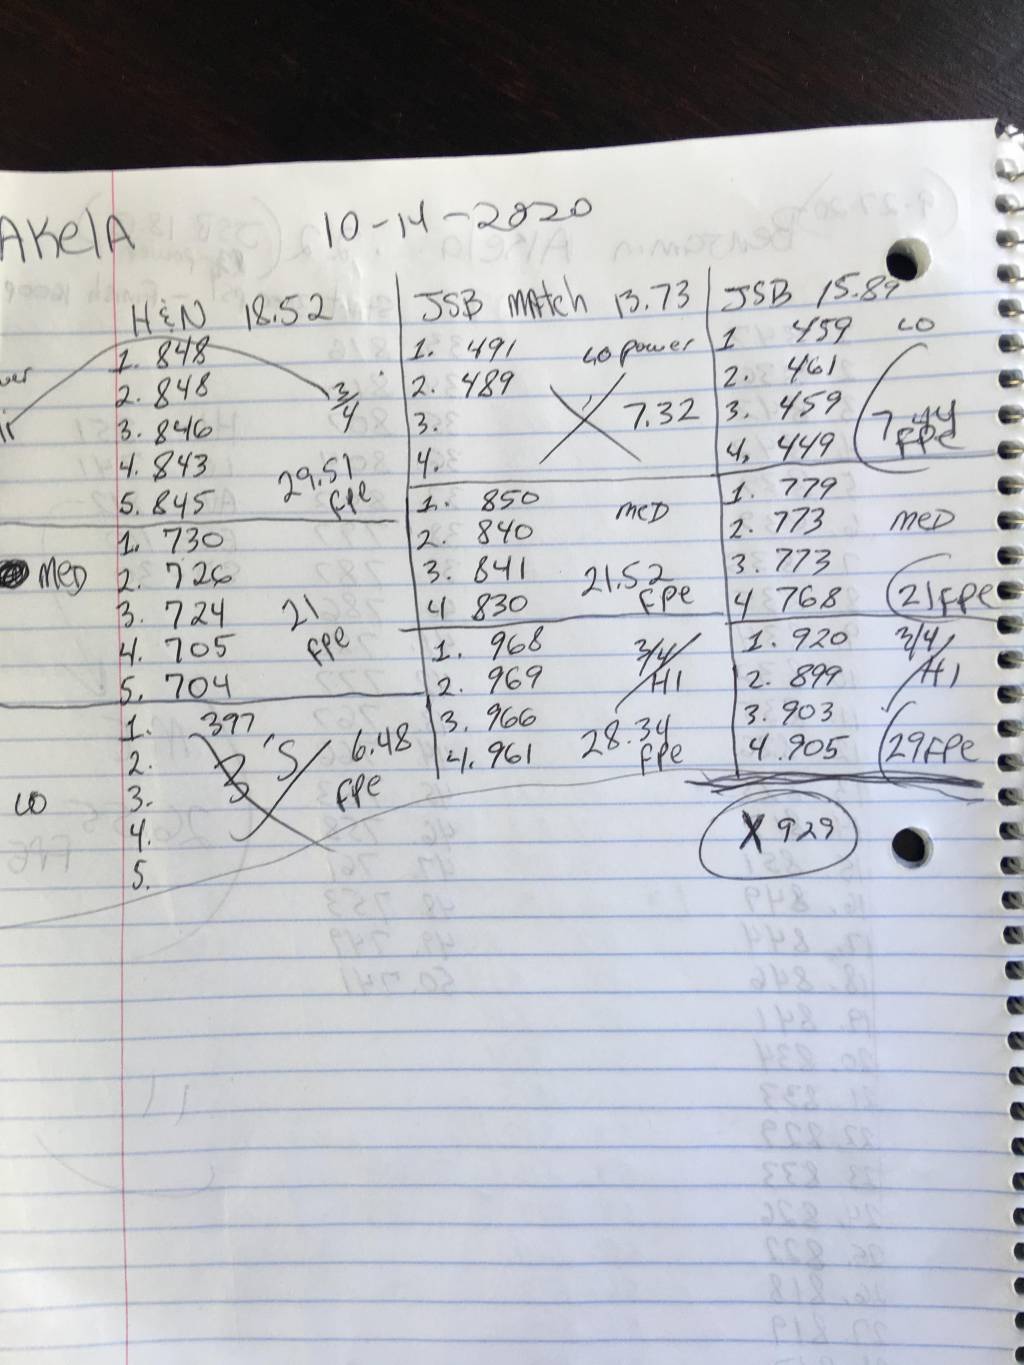 AKelA 10-14-2020
H&N 18.52
1. 848
2. 848
3/4
3. 846
4. 843
29.51
FPe
5. 845
MED
1. 730
2. 726
3. 724
21
FPe
4. 705
5. 704
LO
1. 397
2.
6.48
FPe
3.
4.
5.
JSB MAtch 13.73
1. 491
LO power
2. 489
7.32
3.
4.
1. 850
MED
2. 840
3. 841
21.52
FPe
4 830
1. 968
3/4
HI
2. 969
3. 966
28.34
FPe
4. 961
JSB 15.89
1 459
LO
2. 461
3. 459
7.44
FPe
4. 449
1. 779
MED
2. 773
3. 773
4 768
21 FPe
1. 920
3/4
HI
2. 899
3. 903
4. 905
29 FPe
X 929